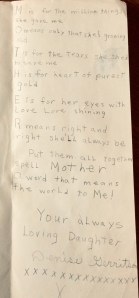 M is for the million things
she gave me
O means only that she's growing
old
T is for the tears
save me
H is for heart of purest
gold
E is for her eyes with
Love Love shining
R means right and
right she'll always be
Put them all together
spell Mother
A word that means
the world to Me!
Your always
Loving Daughter
xxxxxxxxxxxx